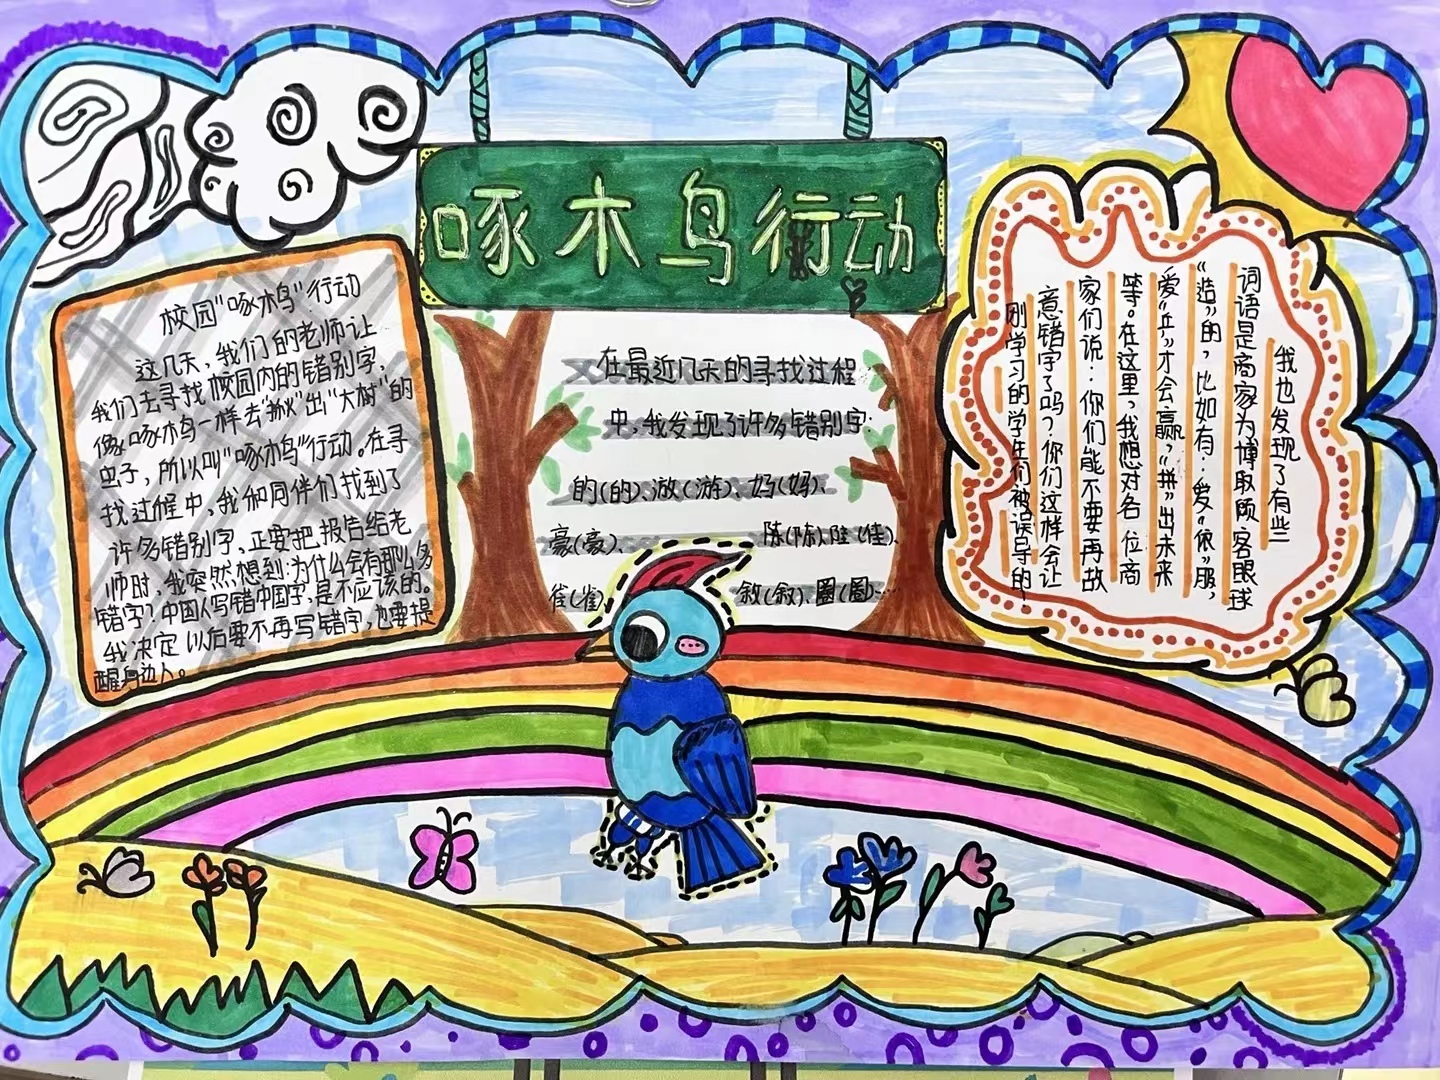 啄木鸟行动
校园"啄木鸟"行动
这几天,我们的老师让
我们去寻找校园内的错别字,
像啄木鸟一样去"揪"出"大树"的
虫子,所以叫"啄木鸟"行动。在寻
找过程中,我和同伴们找到了
许多错别字,正要把报告给老
师时,我突然想到:为什么会有那么多
错字?中国人写错中国字,是不应该的。
我决定以后要不再写错字,也要提
醒身边人。
在最近几天的寻找过程
中,我发现了许多错别字:
的(的)、游(游)、妈(妈)、
豪(豪)、陈(陈)、佳(佳)、
雀(雀)、叙(叙)、圈(圈)…
我也发现了有些
词语是商家为博取顾客眼球
"造"的,比如有:爱"依"服,
爱"乒"才会赢,"拼"出未来
等。在这里,我想对各位商
家们说:你们能不要再故
意错字了吗?你们这样会让
刚学习的学生们被误导的